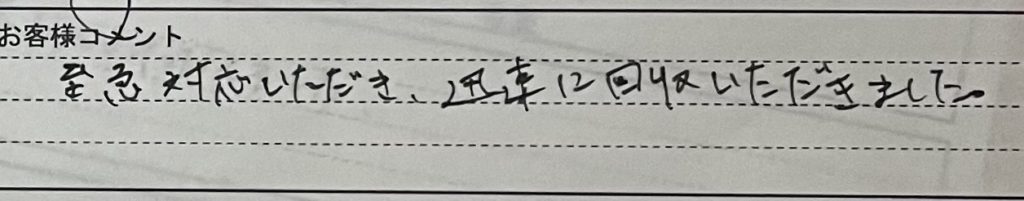 お客様コメント
至急対応いただき、迅速に回収いただきました。